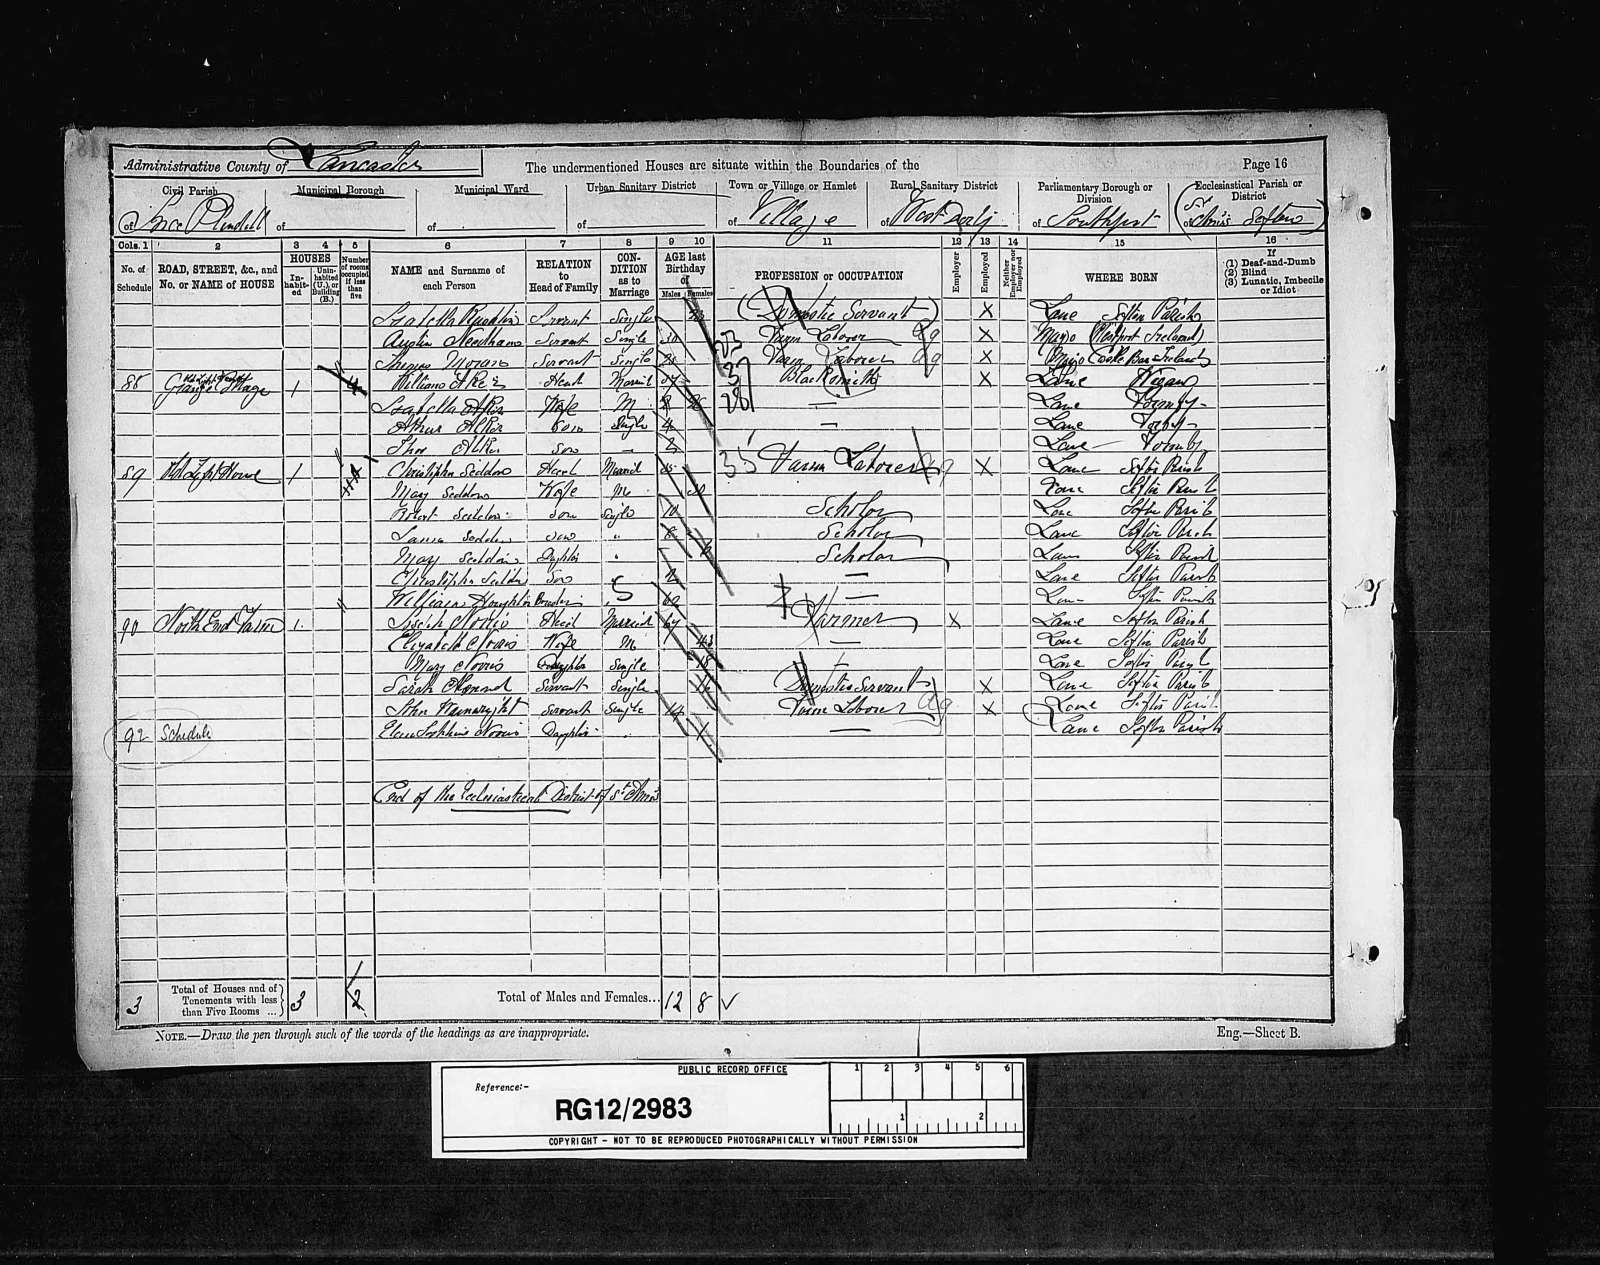 Administrative County of Lancaster
The undermentioned Houses are situate within the Boundaries of the
Page 16
Civil Parish
Municipal Borough
Municipal Ward
Urban Sanitary District
Town or Village or Hamlet
Rural Sanitary District
Parliamentary Borough or Division
Ecclesiastical Parish or District
of Ince Blundell of
of
of
of Village
of West Derby
of Southport
of St Ann's Sefton
Cols. 1 2 3 4 5 6 7 8 9 10 11 12 13 14 15 16
No. of Schedule
ROAD, STREET, &c., and No. or NAME of HOUSE
HOUSES
In-habit-ed
Unin-habited (U.), or Building (B.)
Number of rooms occupied if less than five
NAME and Surname of each Person
RELATION to Head of Family
CON-DITION as to Marriage
AGE last Birthday of
Males Females
PROFESSION or OCCUPATION
Employer
Employed
Neither Employer nor Employed
WHERE BORN
If
(1) Deaf-and-Dumb
(2) Blind
(3) Lunatic, Imbecile or Idiot
Isabella Servant Single (Domestic Servant) X Lanc Sefton Parish
Needham Servant Single 30 Farm Laborer Ag X Mayo Ireland
Thomas Moran Servant Single Farm Laborer Ag X Mayo Ireland
Cottage 1 4 William Head Married 37 Blacksmith X Lanc
Isabella Wife M Lanc Formby
Arthur Son Single 4 Lanc Formby
Son 2 Lanc Formby
89 House 1 4 Christopher Seddon Head Married 35 Farm Laborer Ag X Lanc Sefton Parish
Mary Seddon Wife M Lanc Sefton Parish
Robert Seddon Son Single 10 Scholar Lanc Sefton Parish
Seddon Son " 8 Scholar Lanc Sefton Parish
May Seddon Daughter " Scholar Lanc Sefton Parish
Christopher Seddon Son 2 Lanc Sefton Parish
William Houghton Lanc Sefton Parish
90 North End Farm 1 Norris Head Married 67 Farmer X Lanc Sefton Parish
Elizabeth Norris Wife M 43 Lanc Sefton Parish
Mary Norris Daughter Single 18 Lanc Sefton Parish
Sarah Servant Single Domestic Servant X Lanc Sefton Parish
John Wainwright Servant Single 14 Farm Laborer Ag X Lanc Sefton Parish
92 Schedule Norris Daughter Lanc Sefton Parish
End of the Ecclesiastical District of St Ann's
3 Total of Houses and of Tenements with less than Five Rooms ... 3 2 Total of Males and Females... 12 8
NOTE.—Draw the pen through such of the words of the headings as are inappropriate.
Eng.—Sheet B.
PUBLIC RECORD OFFICE
Reference:-
RG12/2983
1 2 3 4 5 6
1 2
COPYRIGHT - NOT TO BE REPRODUCED PHOTOGRAPHICALLY WITHOUT PERMISSION